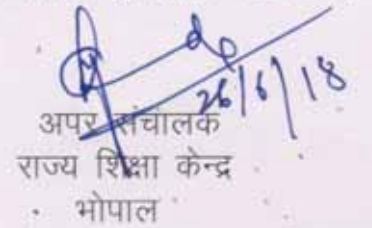 26/6/18
अपर संचालक
राज्य शिक्षा केन्द्र
भोपाल